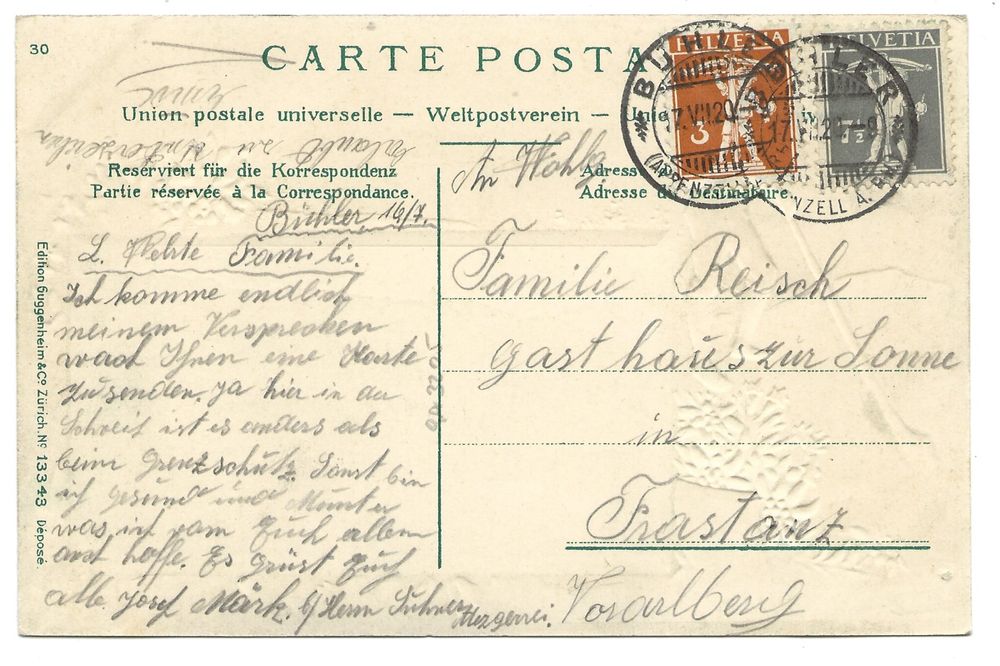 30
CARTE POSTA
Union postale universelle – Weltpostverein –
Reserviert für die Korrespondenz
Partie réservée à la Correspondance.
Bühler, 16/7.
L. Wehrte Familie.
Ich komme endlich
meinem Versprechen
nach Ihnen eine Karte
zusenden. Ja hier in der
Schweiz ist es anders als
beim Grenzschutz. Sonst bin
ich gesund und Munter
was ich vom Euch allem
auch hoffe. Es Grüst Euch
alle. Josef Märk. b/Herrn Suhner
Mezgerei.
Edition Guggenheim & Co. Zürich. No 13343 Déposé.
HELVETIA
3
HELVETIA
7½
BÜHLER
17.VII.20.–9
(APPENZELL A. RH.)
An Wohlg
Adresse du Destinataire.
Familie Reisch
Gasthaus zur Sonne
in
Frastanz
Vorarlberg